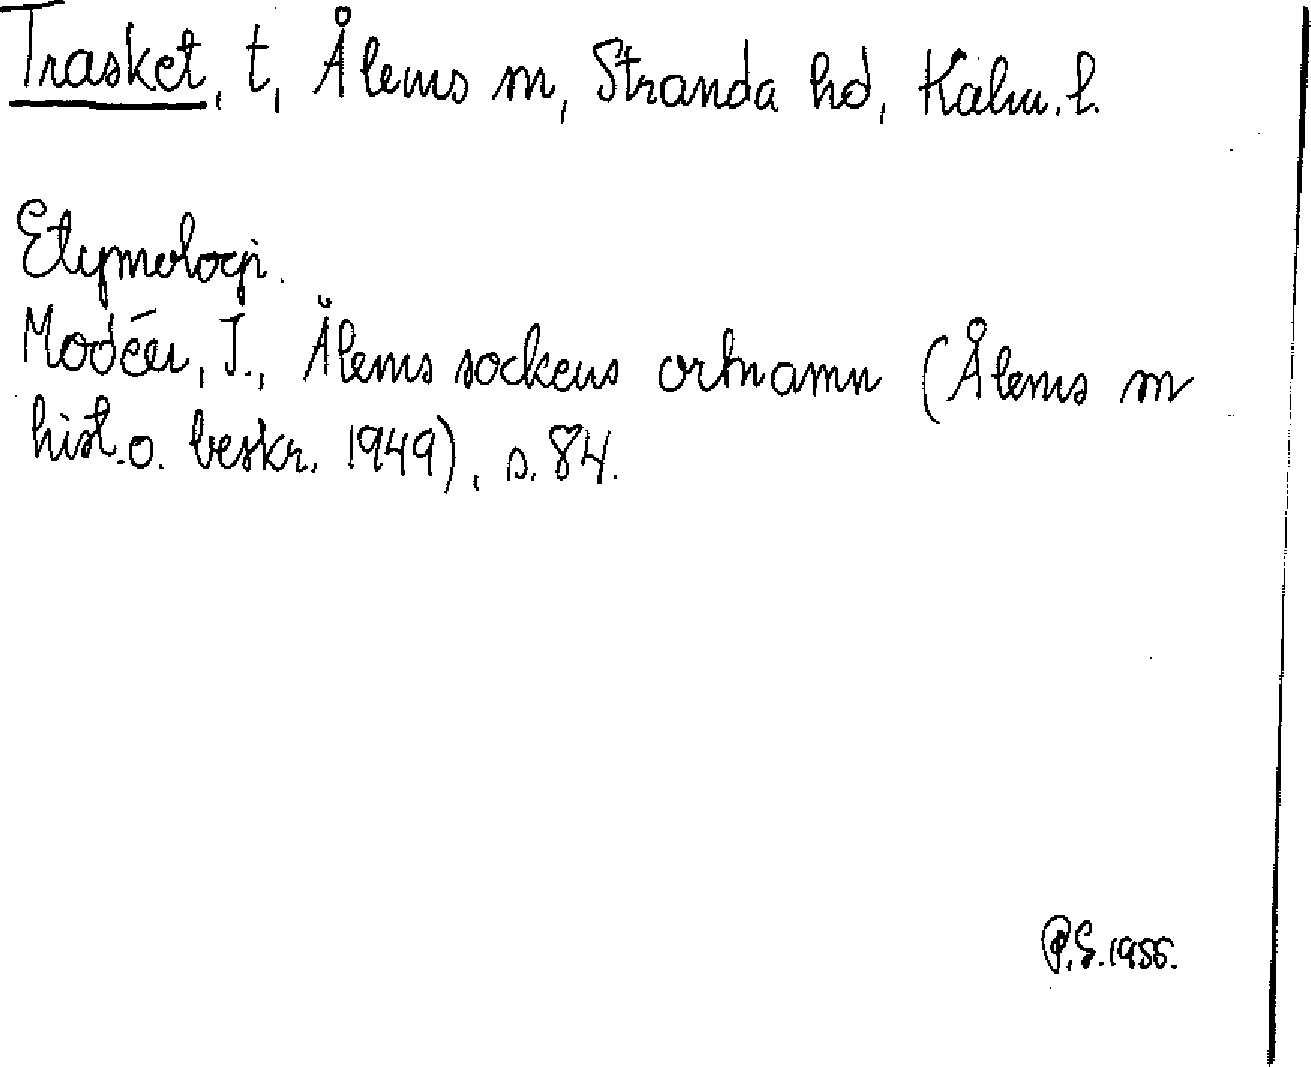 Trasket, t, Ålems sn, Stranda hd, Kalm. l.
Etymologi.
Modéer, I., Ålems sockens ortnamn (Ålems sn
hist. o. beskr. 1949), s. 84.